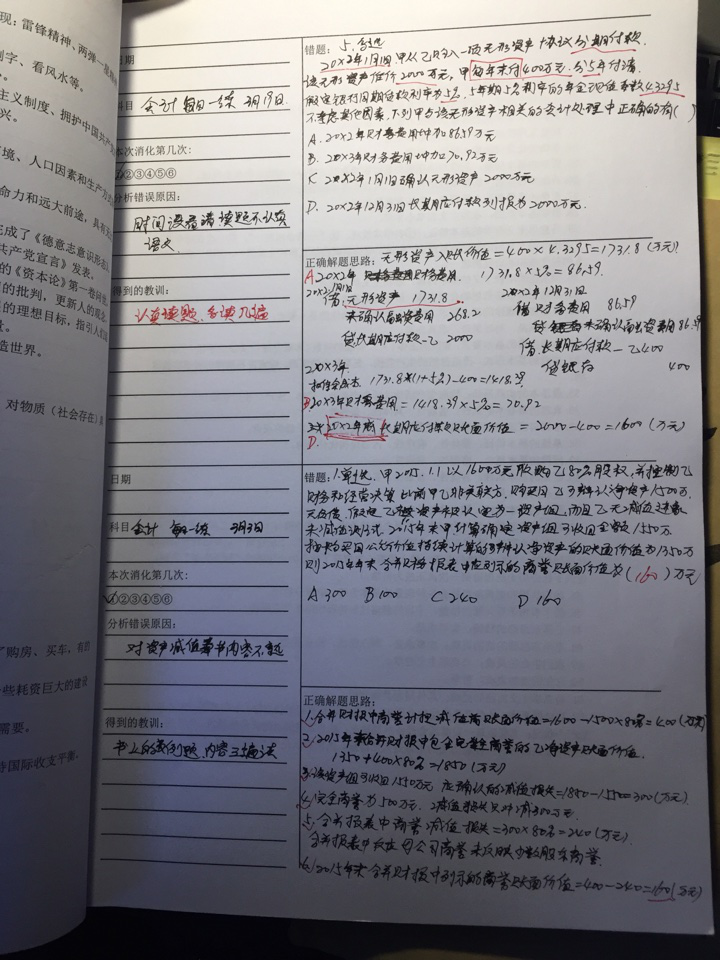 现：雷锋精神、两弹一
刻字、看风水等。
主义制度、拥护中国共产
兴。
环境、人口因素和生产方
命力和远大前途，具有
完成了《德意志意识形态》
共产党宣言》发表。
的《资本论》第一卷问
的批判，更新人的观念
的理想目标，指引人们
造世界。
对物质（社会存在）具
购房、买车，有的
些耗资巨大的建设
需要。
持国际收支平衡，
日期
科目 会计 每日一练 3月19日
本次消化第几次：
①②③④⑤⑥
分析错误原因：
时间没看清 读题不认真
得到的教训：
认真读题，多读几遍
错题：5. 多选
20×2年1月1日，甲从乙购入一项无形资产，协议分期付款，
该无形资产作价2000万元，甲每年末付400万元，分5年付清，
假定银行同期贷款利率为5%，5年期5%利率的年金现值系数4.3295
不考虑其他因素，下列甲与该无形资产相关的会计处理中正确的有( )
A. 20×2年财务费用增加86.59万元
B. 20×3年财务费用增加70.92万元
C. 20×2年1月1日确认无形资产2000万元
D. 20×2年12月31日长期应付款列报为2000万元.
正确解题思路：无形资产入账价值=400×4.3295=1731.8(万元)
A 20×2年 财务费用 1731.8×5%=86.59.
20×2.1月1日
借：无形资产 1731.8
未确认融资费用 268.2
贷：长期应付款—乙 2000
20×2年12月31日
借：财务费用 86.59
贷：未确认融资费用 86.59
借：长期应付款—乙 400
贷：银存 400
20×3年
摊余成本 1731.8×(1+5%)-400=1418.39
B 20×3年财务费用=1418.39×5%=70.92
20×2年底长期应付款账面价值=2000-400=1600(万元)
D.
日期
科目 会计 每日一练 3月3日
本次消化第几次：
①②③④⑤⑥
分析错误原因：
对资产减值章书内容不熟
得到的教训：
书上的例题、内容三遍读
错题：1.单选. 甲2015.1.1以1600万元收购乙80%股权，并控制乙
财务和经营决策 此前甲乙非关联方，购买日乙可辨认净资产1500万，
无负债，假定乙整资产被认定为一资产组，而且乙无减值迹象
未减值测试. 2015年末甲计算确定资产组可收回金额1550万，
按购买日公允价值持续计算的可辨认净资产的账面价值为1350万
则2015年年末合并财务报表中应列示的商誉账面价值为(160)万元
A 300 B 100 C 240 D 160
正确解题思路：
1.合并财报中商誉计提减值前账面价值=1600-1500×80%=400(万元)
2. 2015年末合并财报中包含完整商誉的乙净资产账面价值
1350+400÷80%=1850(万元)
3.该资产组可收回1550万元 应确认的减值损失=1850-1550=300(万元)
4.完全商誉为500万元. 减值损失只冲减300万元.
5.合并报表中商誉减值损失=300×80%=240(万元)
合并报表中反应母公司商誉 未反映少数股东商誉.
6. 2015年末合并财报中列示的商誉账面价值=400-240=160(万元)